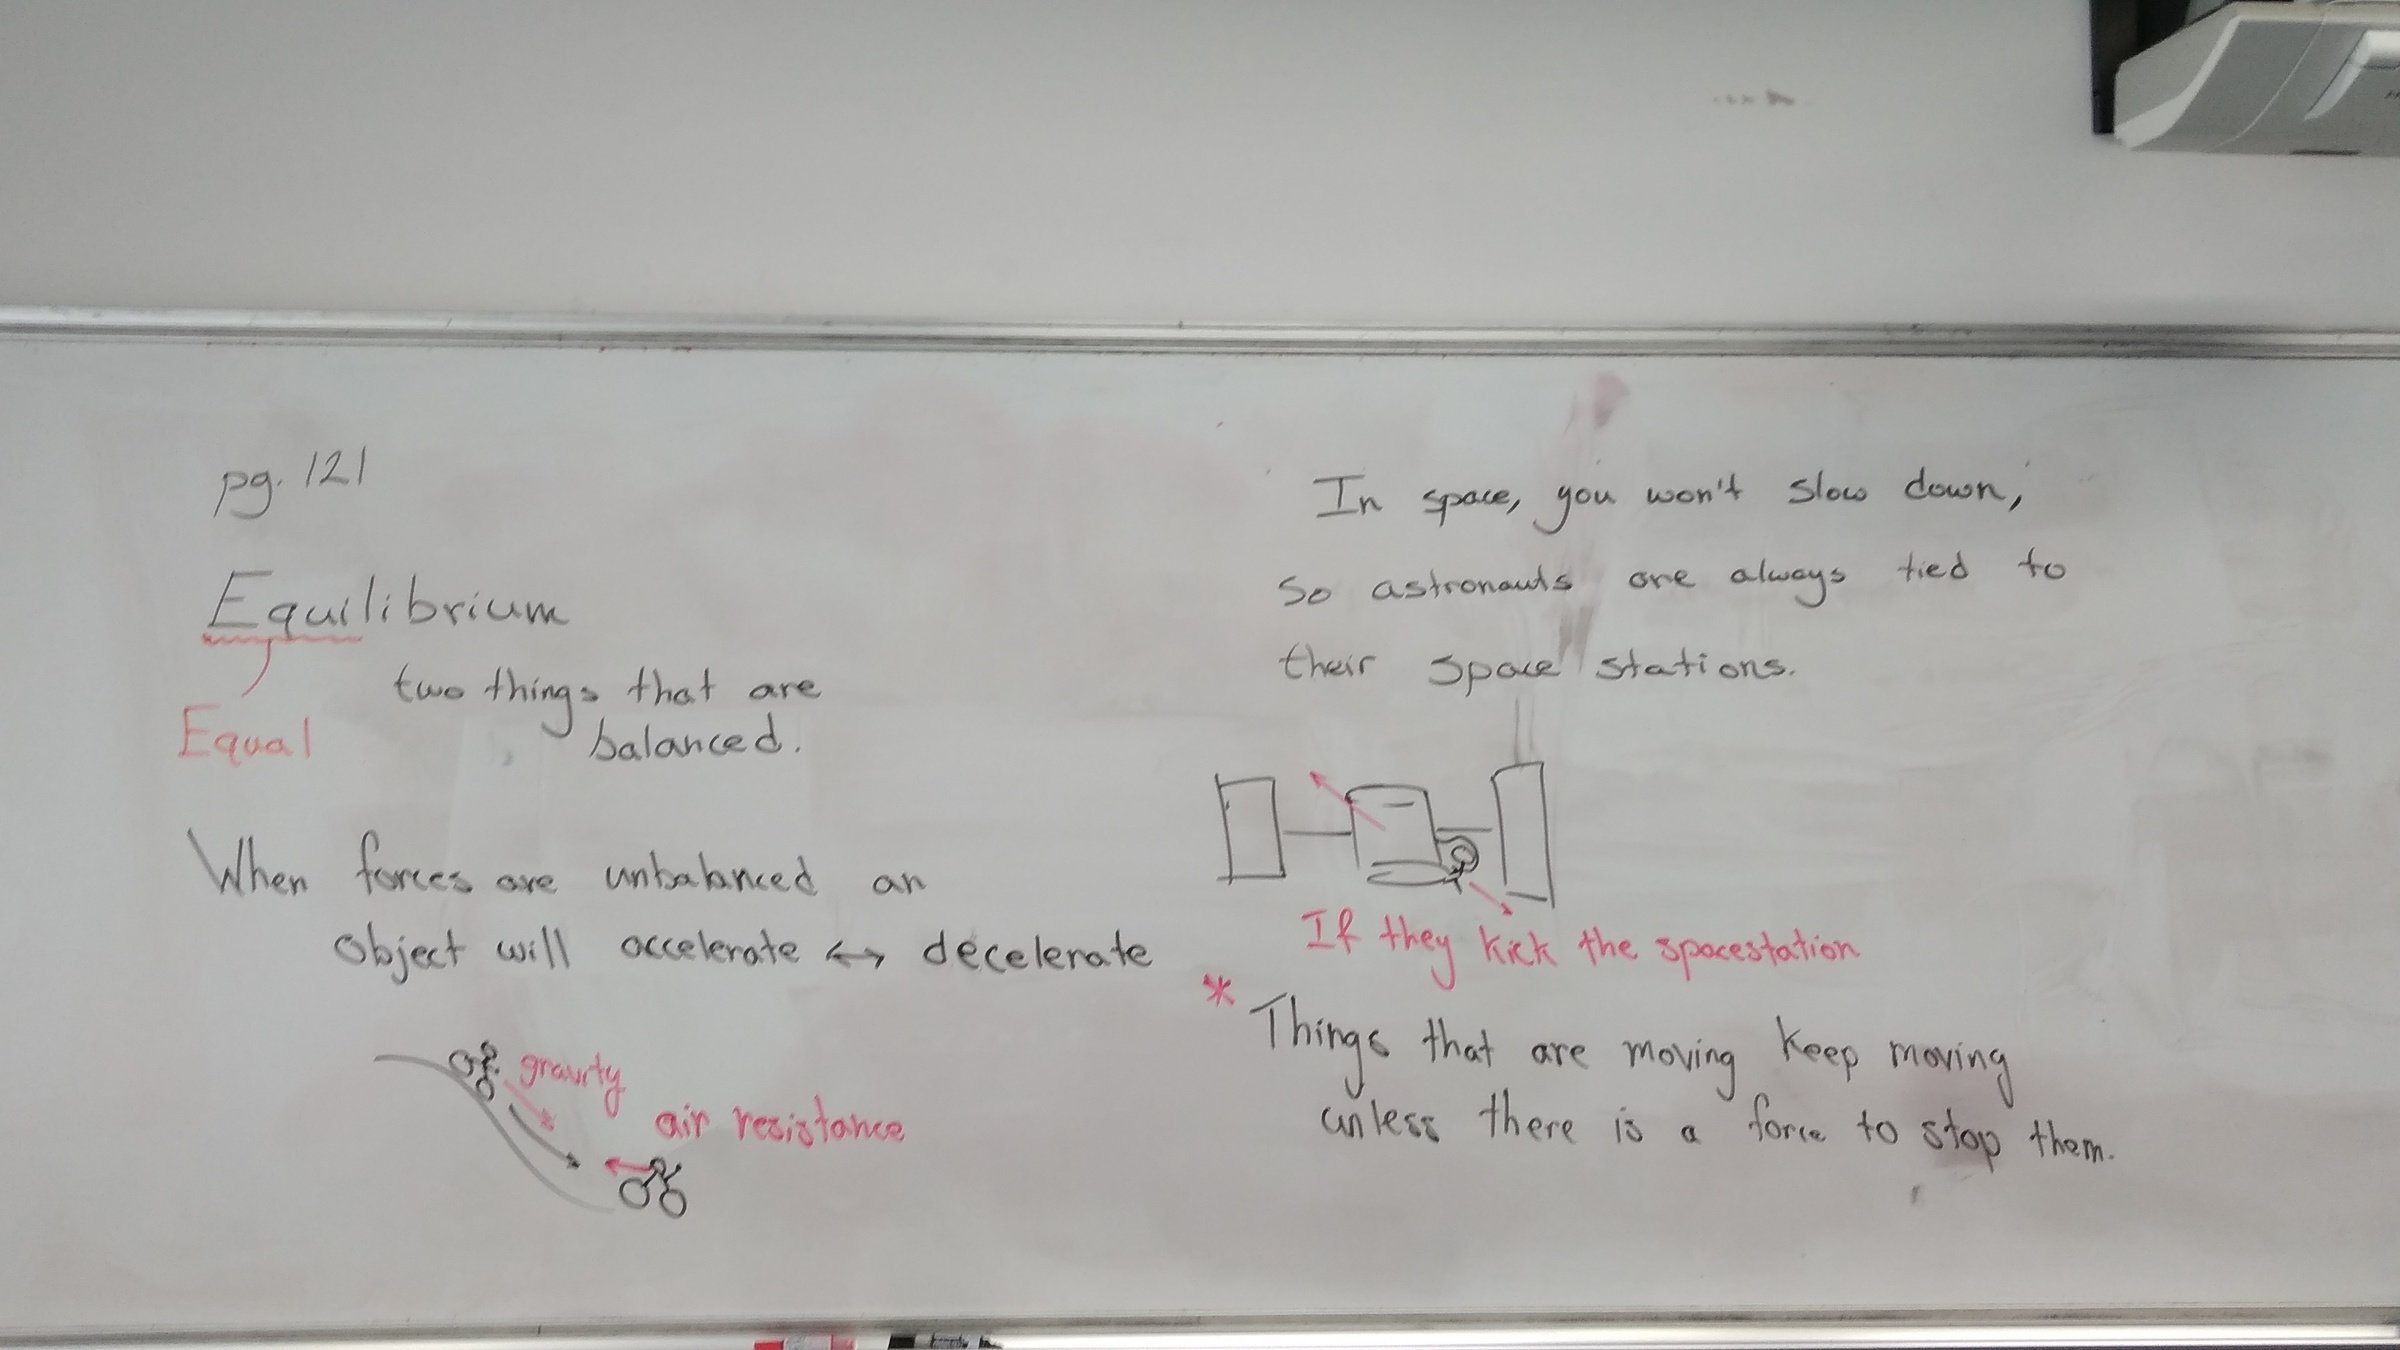 pg. 121
Equilibrium
Equal
two things that are
balanced.
When forces are unbalanced an
object will accelerate ↔ decelerate
gravity
air resistance
In space, you won't slow down,
so astronauts are always tied to
their space stations.
If they kick the spacestation
* Things that are moving keep moving
unless there is a force to stop them.